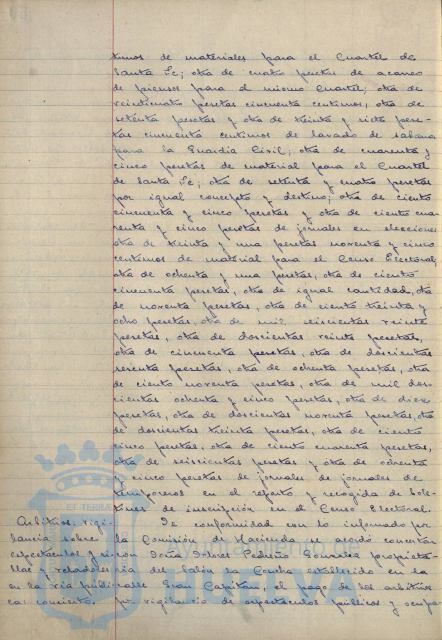 timos de materiales para el Cuartel de
Santa Fe; otra de cuatro pesetas de acarreo
de piensos para el mismo Cuartel; otra de
veinticuatro pesetas cincuenta centimos, otra de
setenta pesetas y otra de treinta y siete pese-
tas cincuenta centimos de lavado de sabanas
para la Guardia Civil; otra de cuarenta y
cinco pesetas de material para el Cuartel
de Santa Fe; otra de setenta y cuatro pesetas
por igual concepto y destino; otra de ciento
cincuenta y cinco pesetas y otra de ciento cua-
renta y cinco pesetas de jornales en elecciones
otra de treinta y una pesetas noventa y cinco
centimos de material para el Censo Electoral,
otra de ochenta y una pesetas, otra de ciento
cincuenta pesetas, otra de igual cantidad, otra
de noventa pesetas, otra de ciento treinta y
ocho pesetas, otra de mil seiscientas veinte
pesetas, otra de doscientas veinte pesetas,
otra de cincuenta pesetas, otra de doscientas
sesenta pesetas, otra de ochenta pesetas, otra
de ciento noventa pesetas, otra de mil dos-
cientas ochenta y cinco pesetas, otra de diez
pesetas, otra de doscientas noventa pesetas, otra
de doscientas treinta pesetas, otra de ciento
cinco pesetas, otra de ciento cuarenta pesetas,
otra de seiscientas pesetas y otra de ochenta
y cinco pesetas de jornales de jornales de
temporeros en el reparto y recogida de bole-
tines de inscripción en el Censo Electoral.
Arbitrios, vigi-
lancia sobre
espectaculos y si-
llas y veladores
en la via publica
concierto.
De conformidad con lo informado por
la Comisión de Hacienda se acordó concertar
con Doña Dolores Gonzalez propieta-
ria del Salón La Concha establecido en la
calle Gran Capitan, el pago de los arbitrios
por vigilancia de espectaculos publicos y ocupa